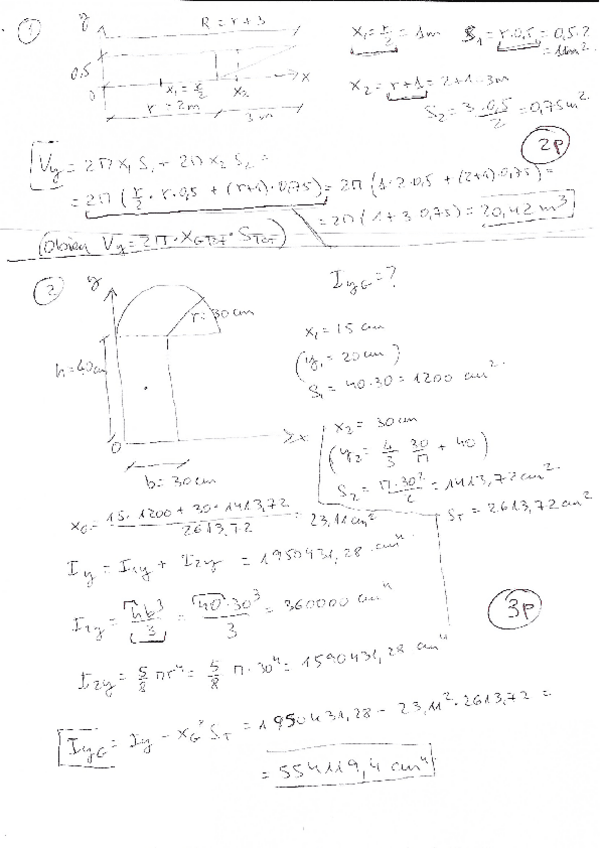 1
y
R = r+3
0,5
0
x₁ = r/2
x₂
x
r = 2m
3m
x₁ = r/2 = 1m
S₁ = r·0,5 = 0,5·2 = 1m²
x₂ = r+1 = 2+1 = 3m
S₂ = 3·0,5/2 = 0,75m²
2p
Vy = 2π x₁ S₁ + 2π x₂ S₂ =
= 2π ( r/2 · r · 0,5 + (r+1) · 0,75 ) = 2π (1·2·0,5 + (2+1)·0,75) =
= 2π (1 + 3·0,75) = 20,42 m³
Vy = 2π · XGTOT · STOT)
2
y
r = 30cm
h = 40cm
0
x
b = 30cm
IyG = ?
x₁ = 15 cm
(y₁ = 20cm)
S₁ = 40·30 = 1200 cm²
x₂ = 30cm
(y₂ = 4/3 30/π + 40)
S₂ = π·30²/2 = 1413,72 cm²
ST = 2613,72 cm²
xG = 15·1200 + 30·1413,72 / 2613,72 = 23,11 cm²
Iy = I1y + I2y = 1950431,28 cm⁴
I1y = hb³/3 = 40·30³/3 = 360000 cm⁴
3p
I2y = 5/8 πr⁴ = 5/8 π·30⁴ = 1590431,28 cm⁴
IyG = Iy - xG² ST = 1950431,28 - 23,11²·2613,72 =
= 554119,4 cm⁴